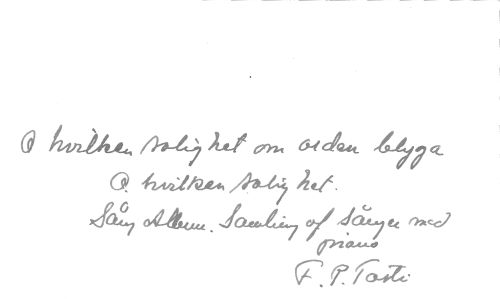 O hvilken salighet om orden blyga
O hvilken salighet.
Sång Album. Samling af sånger med
piano
F. P. Tosti